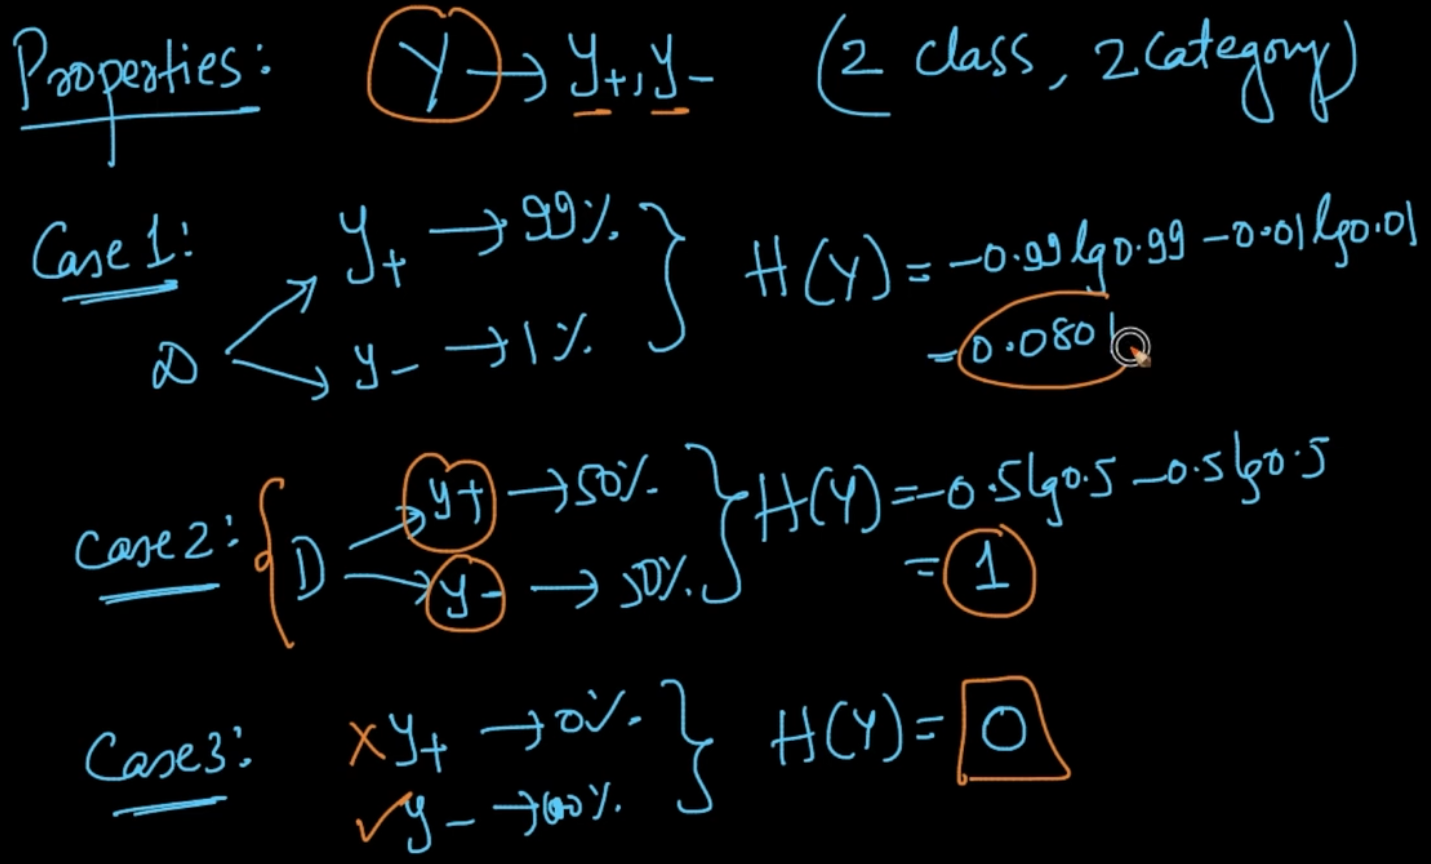 Properties: Y → Y+, Y- (2 class, 2 Category)
Case 1: Y+ → 99%
D
Y- → 1%
H(Y) = -0.99 lg 0.99 - 0.01 lg 0.01
= 0.0801
Case 2: D
y+ → 50%
y- → 50%
H(Y) = -0.5 lg 0.5 - 0.5 lg 0.5
= 1
Case 3: x y+ → 0%
✓ y- → 100%
H(Y) = 0